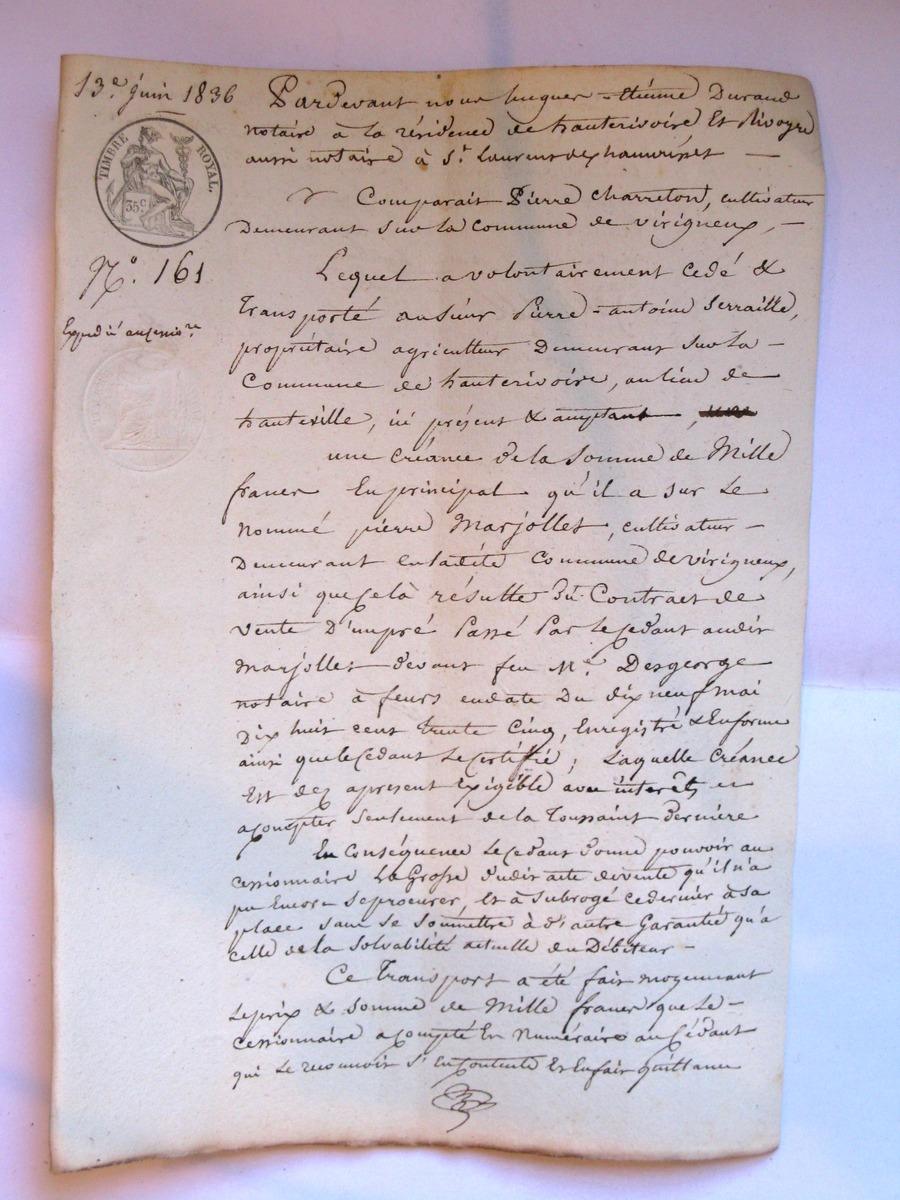 13e. juin 1836
TIMBRE ROYAL.
35c.
No. 161
Expedié au cessionre.
Pardevant nous hugues-Etienne Durand
notaire à la résidence de hauterivoire Et Rivoyre
aussi notaire à St. Laurent de chamousset —
Comparait Pierre Charreton, cultivateur
Demeurant sur la Commune de virigneux, —
Lequel a volontairement cedé &
transporté au sieur Pierre-antoine Serraille,
propriétaire agriculteur Demeurant Sur la —
Commune de hauterivoire, au lieu de
hauteville, ici présent & acceptant,
une Créance de la Somme de Mille
francs En principal qu'il a sur Le
Nommé pierre Marjollet, cultivateur —
Demeurant en ladite Commune de virigneux,
ainsi que Celà résulte Du Contract de
vente D'un pré Passé Par Le Cedant audit
Marjollet devant feu Me. Desgeorge
notaire à feurs en date Du dix neuf mai
Dix huit cent trente Cinq, Enregistré & En forme
ainsi que le Cedant Le Certifié; Laquelle Créance
Est dez apresent Exigible avec interêts, en
acompter Seulement de la Toussaint Dernière
En Conséquence Le Cedant donne pouvoir au
cessionnaire La Grosse dudit acte de vente qu'il n'a
pu Encore Se procurer, Et a Subrogé ce dernier à Sa
place sans se Soumettre à d'autre Garantié qu'à
Celle de la Solvabilité actuelle du Débiteur —
Ce Transport a été fait moyennant
Le prix & Somme de Mille francs que Le —
cessionnaire a Compté En Numéraire au Cédant
qui Le reconnoit S'en Contente Et En fait quittance